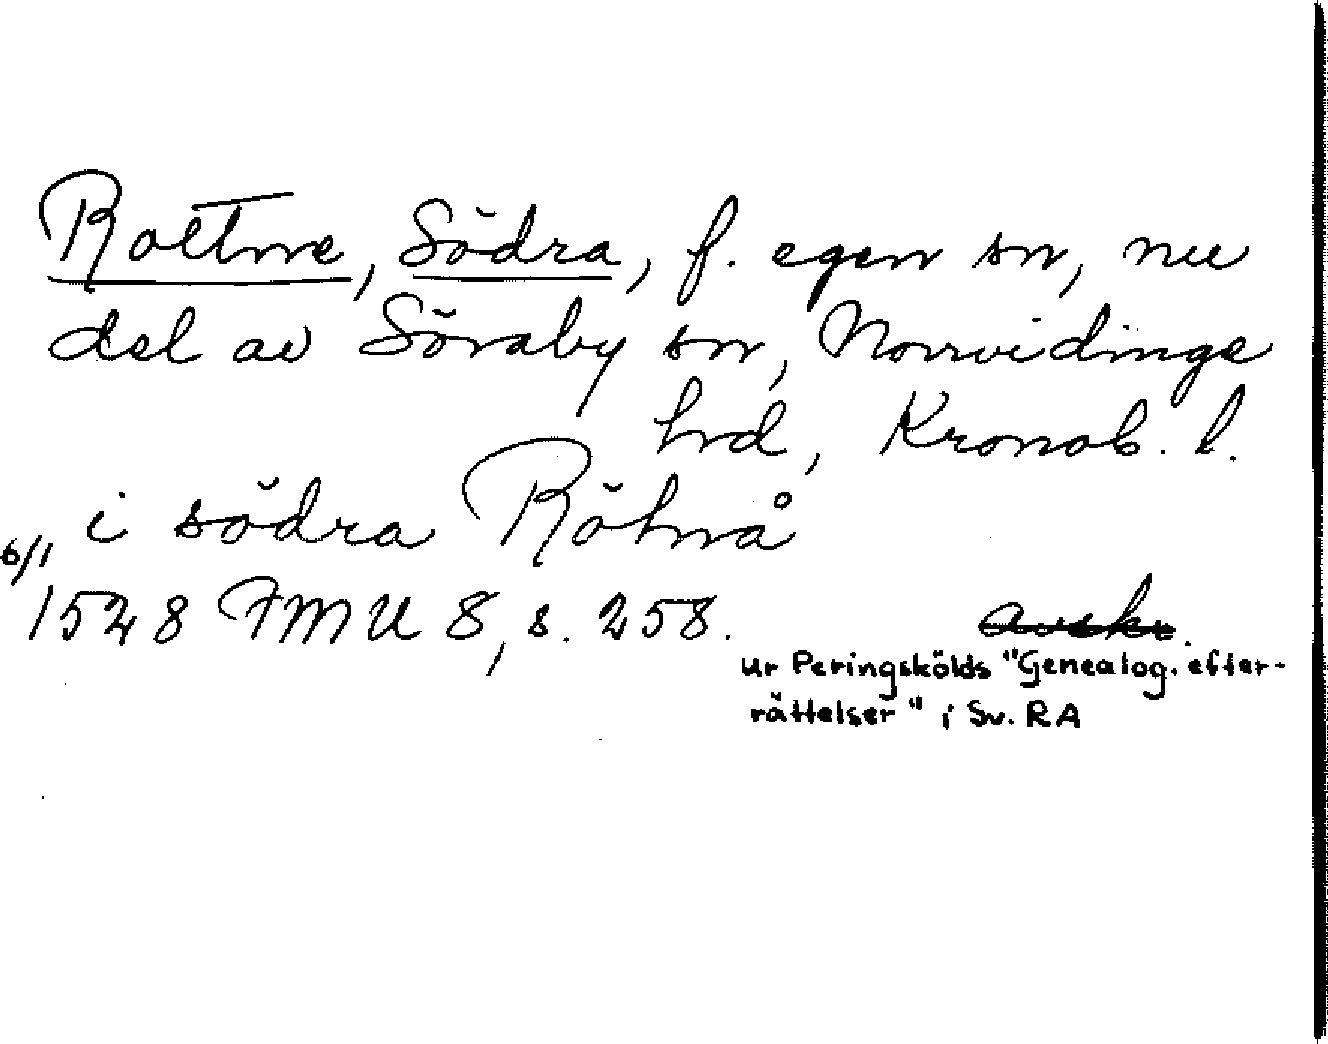 Rottne, Södra, f. egen sn, nu
del av Söraby sn, Norrvidinge
hrd, Kronob. l.
i södra Röhnå
6/1
1528 FMU 8, s. 258. avskr.
ur Peringskölds "Genealog. efter-
rättelser" i Sv. RA